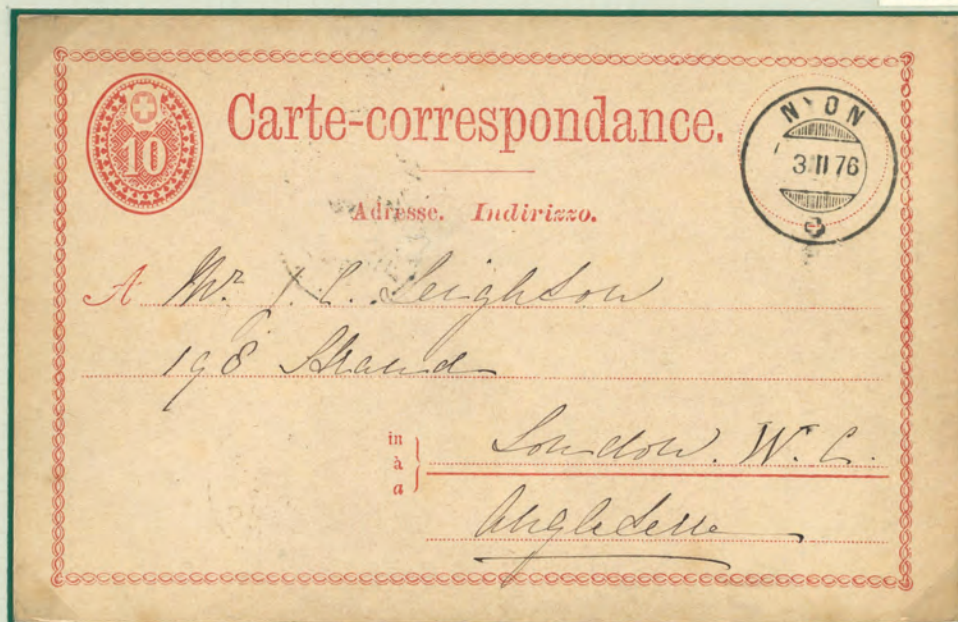 10
Carte-correspondance.
NYON
3 II 76
Adresse. Indirizzo.
A Mr. J. C. Leighton
198 Strand
in
à
a
London. W. C.
Angleterre